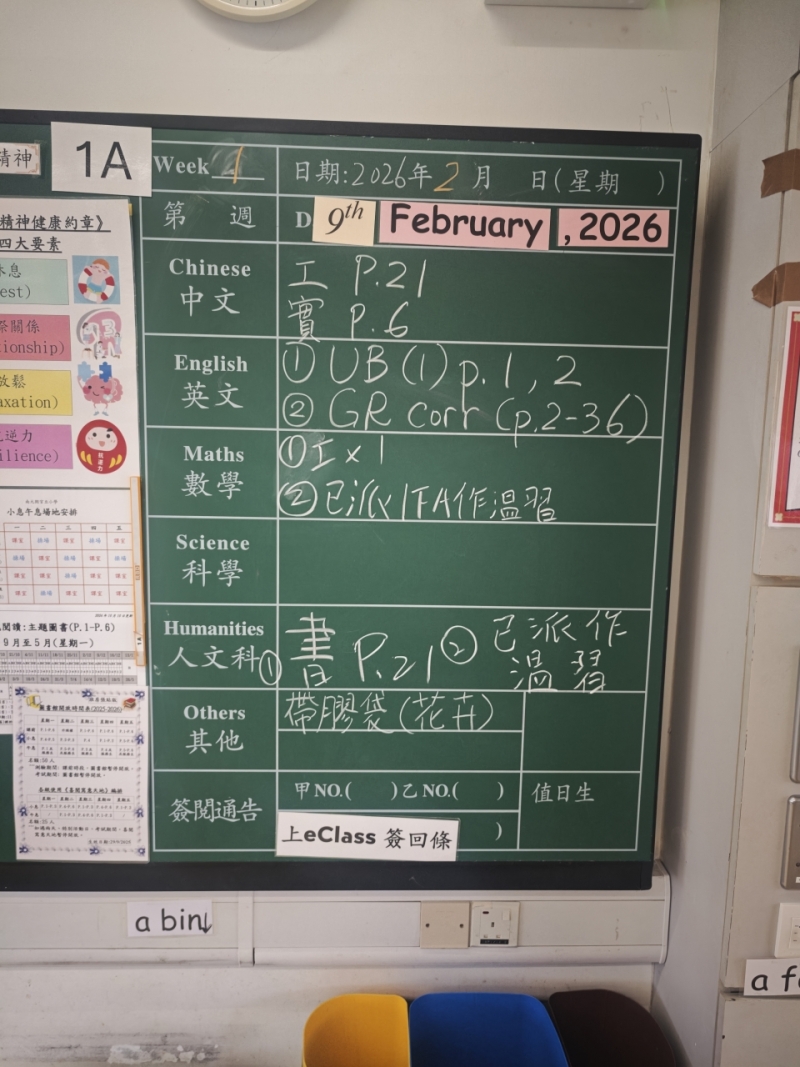 精神
1A
Week 1
日期:2026年2月 日(星期 )
第 週
D 9th February , 2026
Chinese
中文
工 P.21
實 P.6
English
英文
① UB (1) p.1, 2
② GR corr (p.2-36)
Maths
數學
① 工 x 1
② 已派1FA作溫習
Science
科學
Humanities
人文科
① 書 P.21 ② 已派作
溫習
Others
其他
帶膠袋(花卉)
簽閱通告
甲NO.( )乙NO.( )
)
值日生
上eClass 簽回條
精神健康約章》
四大要素
休息
est)
際關係
ionship)
放鬆
axation)
逆力
ilience)
小息午息場地安排
一 二 三 四 五
閱讀:主題圖書(P.1-P.6)
9月至5月(星期一)
圖書館開放時間表(2025-2026)
a bin
a f